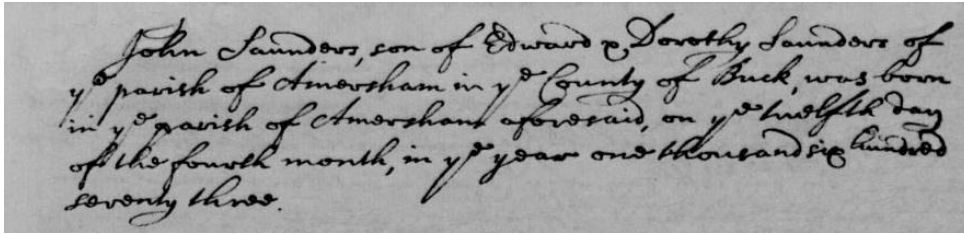 John Saunders, son of Edward & Dorothy Saunders of
yᵉ parish of Amersham in yᵉ County of Buck, was born
in yᵉ parish of Amersham aforesaid, on yᵉ twelfth day
of the fourth month, in yᵉ year one thousand six hundred
seventy three.